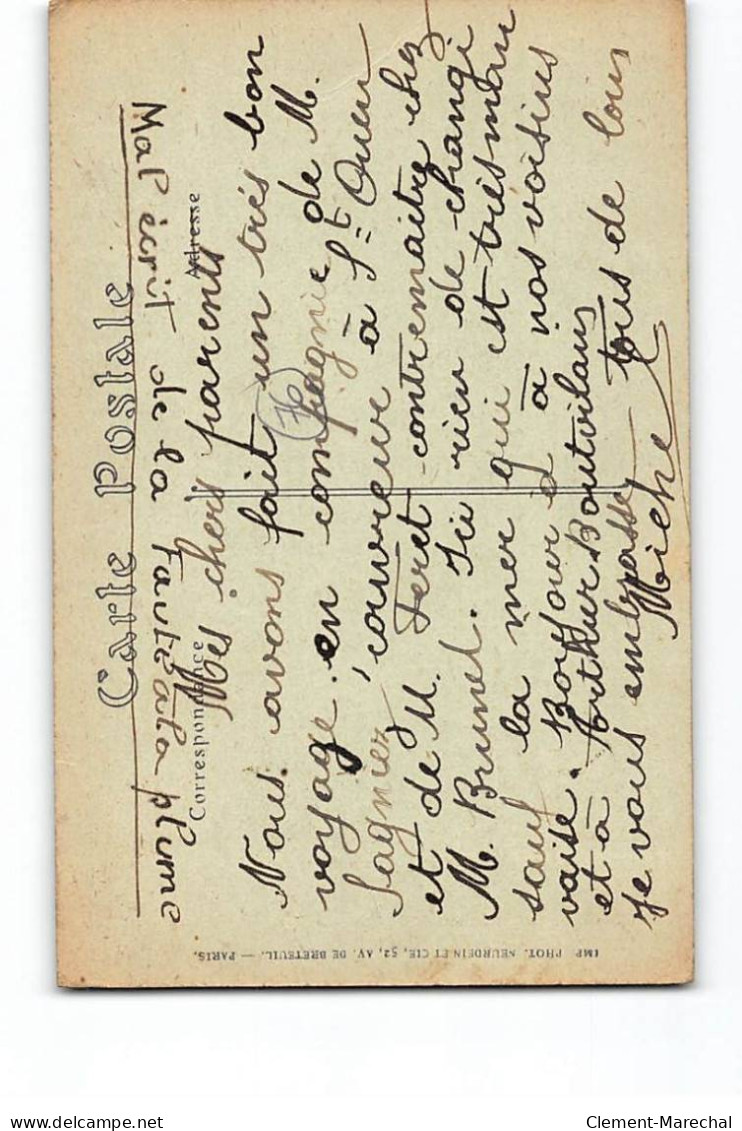 Carte Postale
Mal écrit de la faute à la plume
Correspondance
Adresse
Mes chers parents
Nous avons fait un très bon
voyage en compagnie de M.
Sagniez, couvreur à St Ouen
et de M. Feret contremaitre chez
M. Brunel. Ici rien de changé
sauf la mer qui est très mau
vaise. Bonjour à à nos voisins
et à Arthur Boutvilain
Je vous embrasse tous de loin
Miche
76
IMP. PHOT. NEURDEIN ET CIE, 52, AV. DE BRETEUIL. — PARIS.
Clement-Marechal